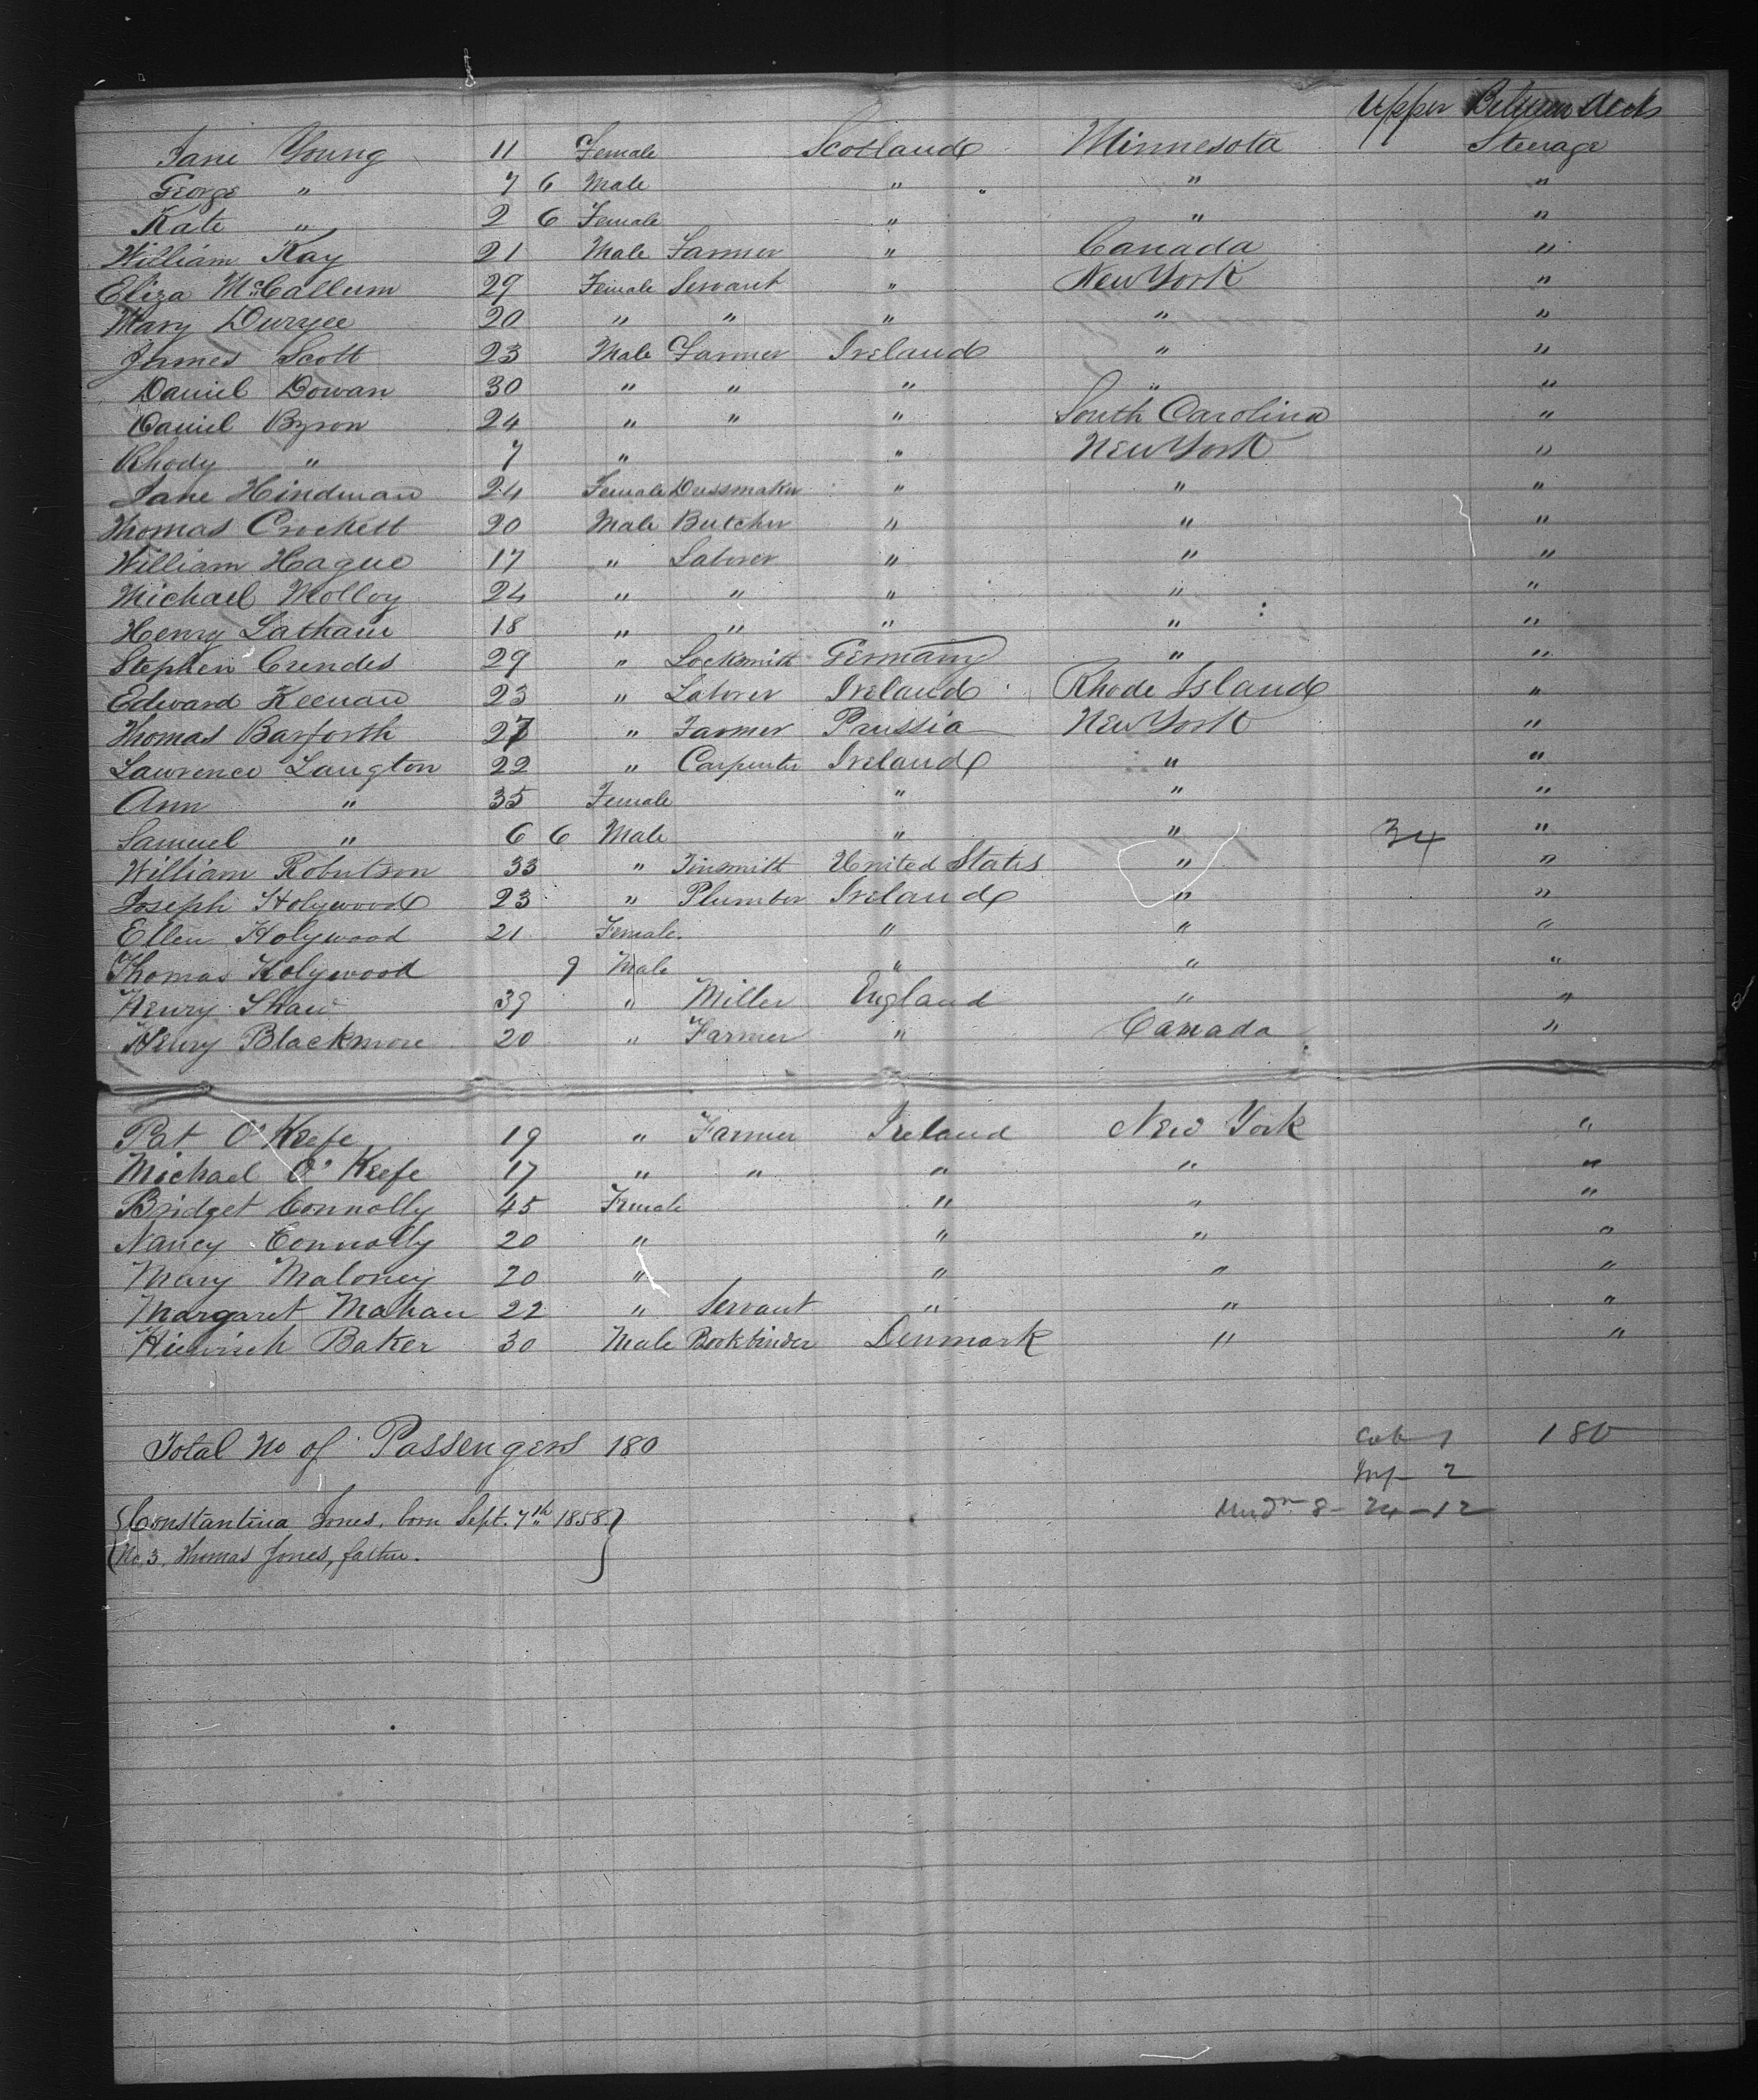 Upper Between decks
Jane Young 11 Female Scotland Minnesota Steerage
George " 7 6 Male " " "
Kate " 2 6 Female " " "
William Kay 21 Male Farmer " Canada "
Eliza McCallum 29 Female Servant " New York "
Mary Duryee 20 " " " " "
James Scott 23 Male Farmer Ireland " "
Daniel Dowan 30 " " " " "
Daniel Byron 24 " " " South Carolina "
Rhody " 7 " " New York "
Jane Hindman 24 Female Dressmaker " " "
Thomas Crockett 20 Male Butcher " " "
William Hague 17 " Laborer " " "
Michael Molloy 24 " " " " "
Henry Latham 18 " " " " "
Stephen Crendes 29 " Locksmith Germany " "
Edward Keenan 23 " Laborer Ireland Rhode Island "
Thomas Barforth 27 " Farmer Prussia New York "
Lawrence Langton 22 " Carpenter Ireland " "
Ann " 35 Female " " "
Samuel " 6 6 Male " " 34 "
William Robertson 33 " Tinsmith United States " "
Joseph Holywood 23 " Plumber Ireland " "
Ellen Holywood 21 Female " " "
Thomas Holywood 9 Male " " "
Henry Shaw 39 " Miller England " "
Henry Blackmore 20 " Farmer " Canada "
Pat O'Keefe 19 " Farmer Ireland New York "
Michael O'Keefe 17 " " " " "
Bridget Connolly 45 Female " " "
Nancy Connolly 20 " " " "
Mary Maloney 20 " " " "
Margaret Mahan 22 " Servant " " "
Hinrich Baker 30 Male Bookbinder Denmark " "
Total No of Passengers 180 Cab 1 180
Inf 2
Constantina Jones, born Sept. 7th 1858 8 - 24 - 12
No. 3, Thomas Jones, father.